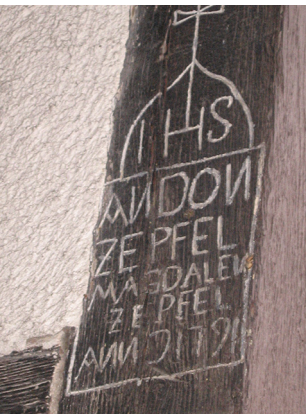 IHS
ANDON
ZEPFEL
MAGDALEN
ZEPFEL
ANN 1791